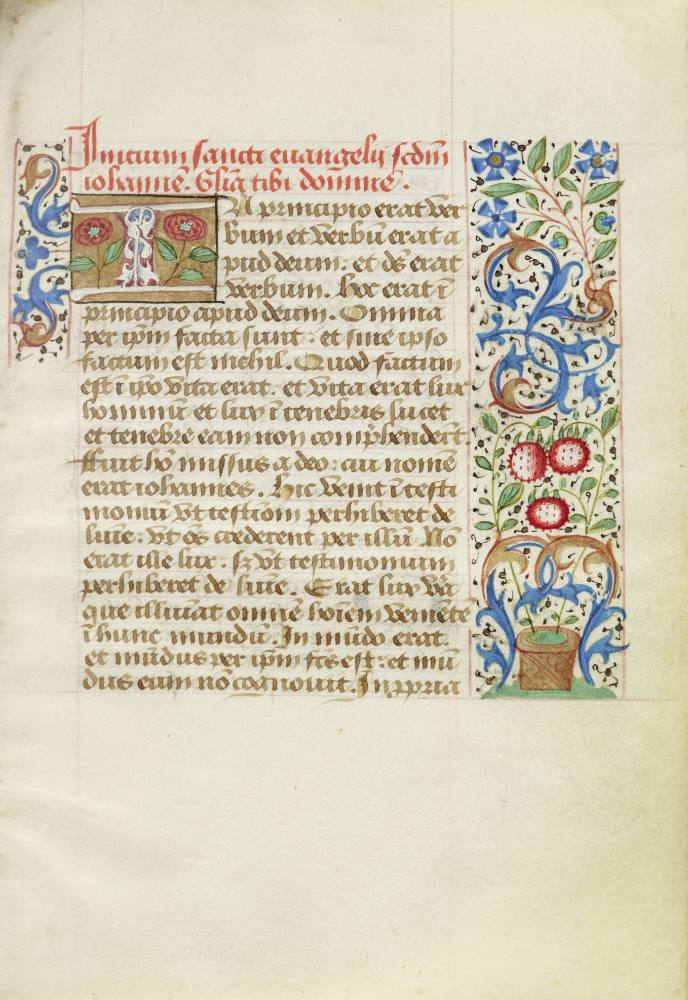 Inicium sancti euangelij scdm̄
iohannē. Gl̄ia tibi dominē.
IN principio erat ver
bum et verbū erat a
pud deum. et dē erat
verbum. hoc erat ī
principio apud deum. Omnia
per ip̄m facta sunt: et sine ipso
factum est nichil. Quod factum
est ī ip̄o vita erat. et vita erat lux
hominū et lux ī tenebris lucet
et tenebre eam non comp̄henderūt.
ffuit hō missus a deo: cui nomē
erat iohannes. hic venit ī testi
moniū vt testīom perhiberet de
lūīe. vt oēs crederent per illū. Nō
erat ille lux. sz vt testimonium
perhiberet de lūīe. Erat lux vā
que illūīat omnē hoīem veniētē
ī hunc mundū. In mūdo erat.
et mūdus per ip̄m fcs est: et mū
dus eum nō cognouit. In ppria